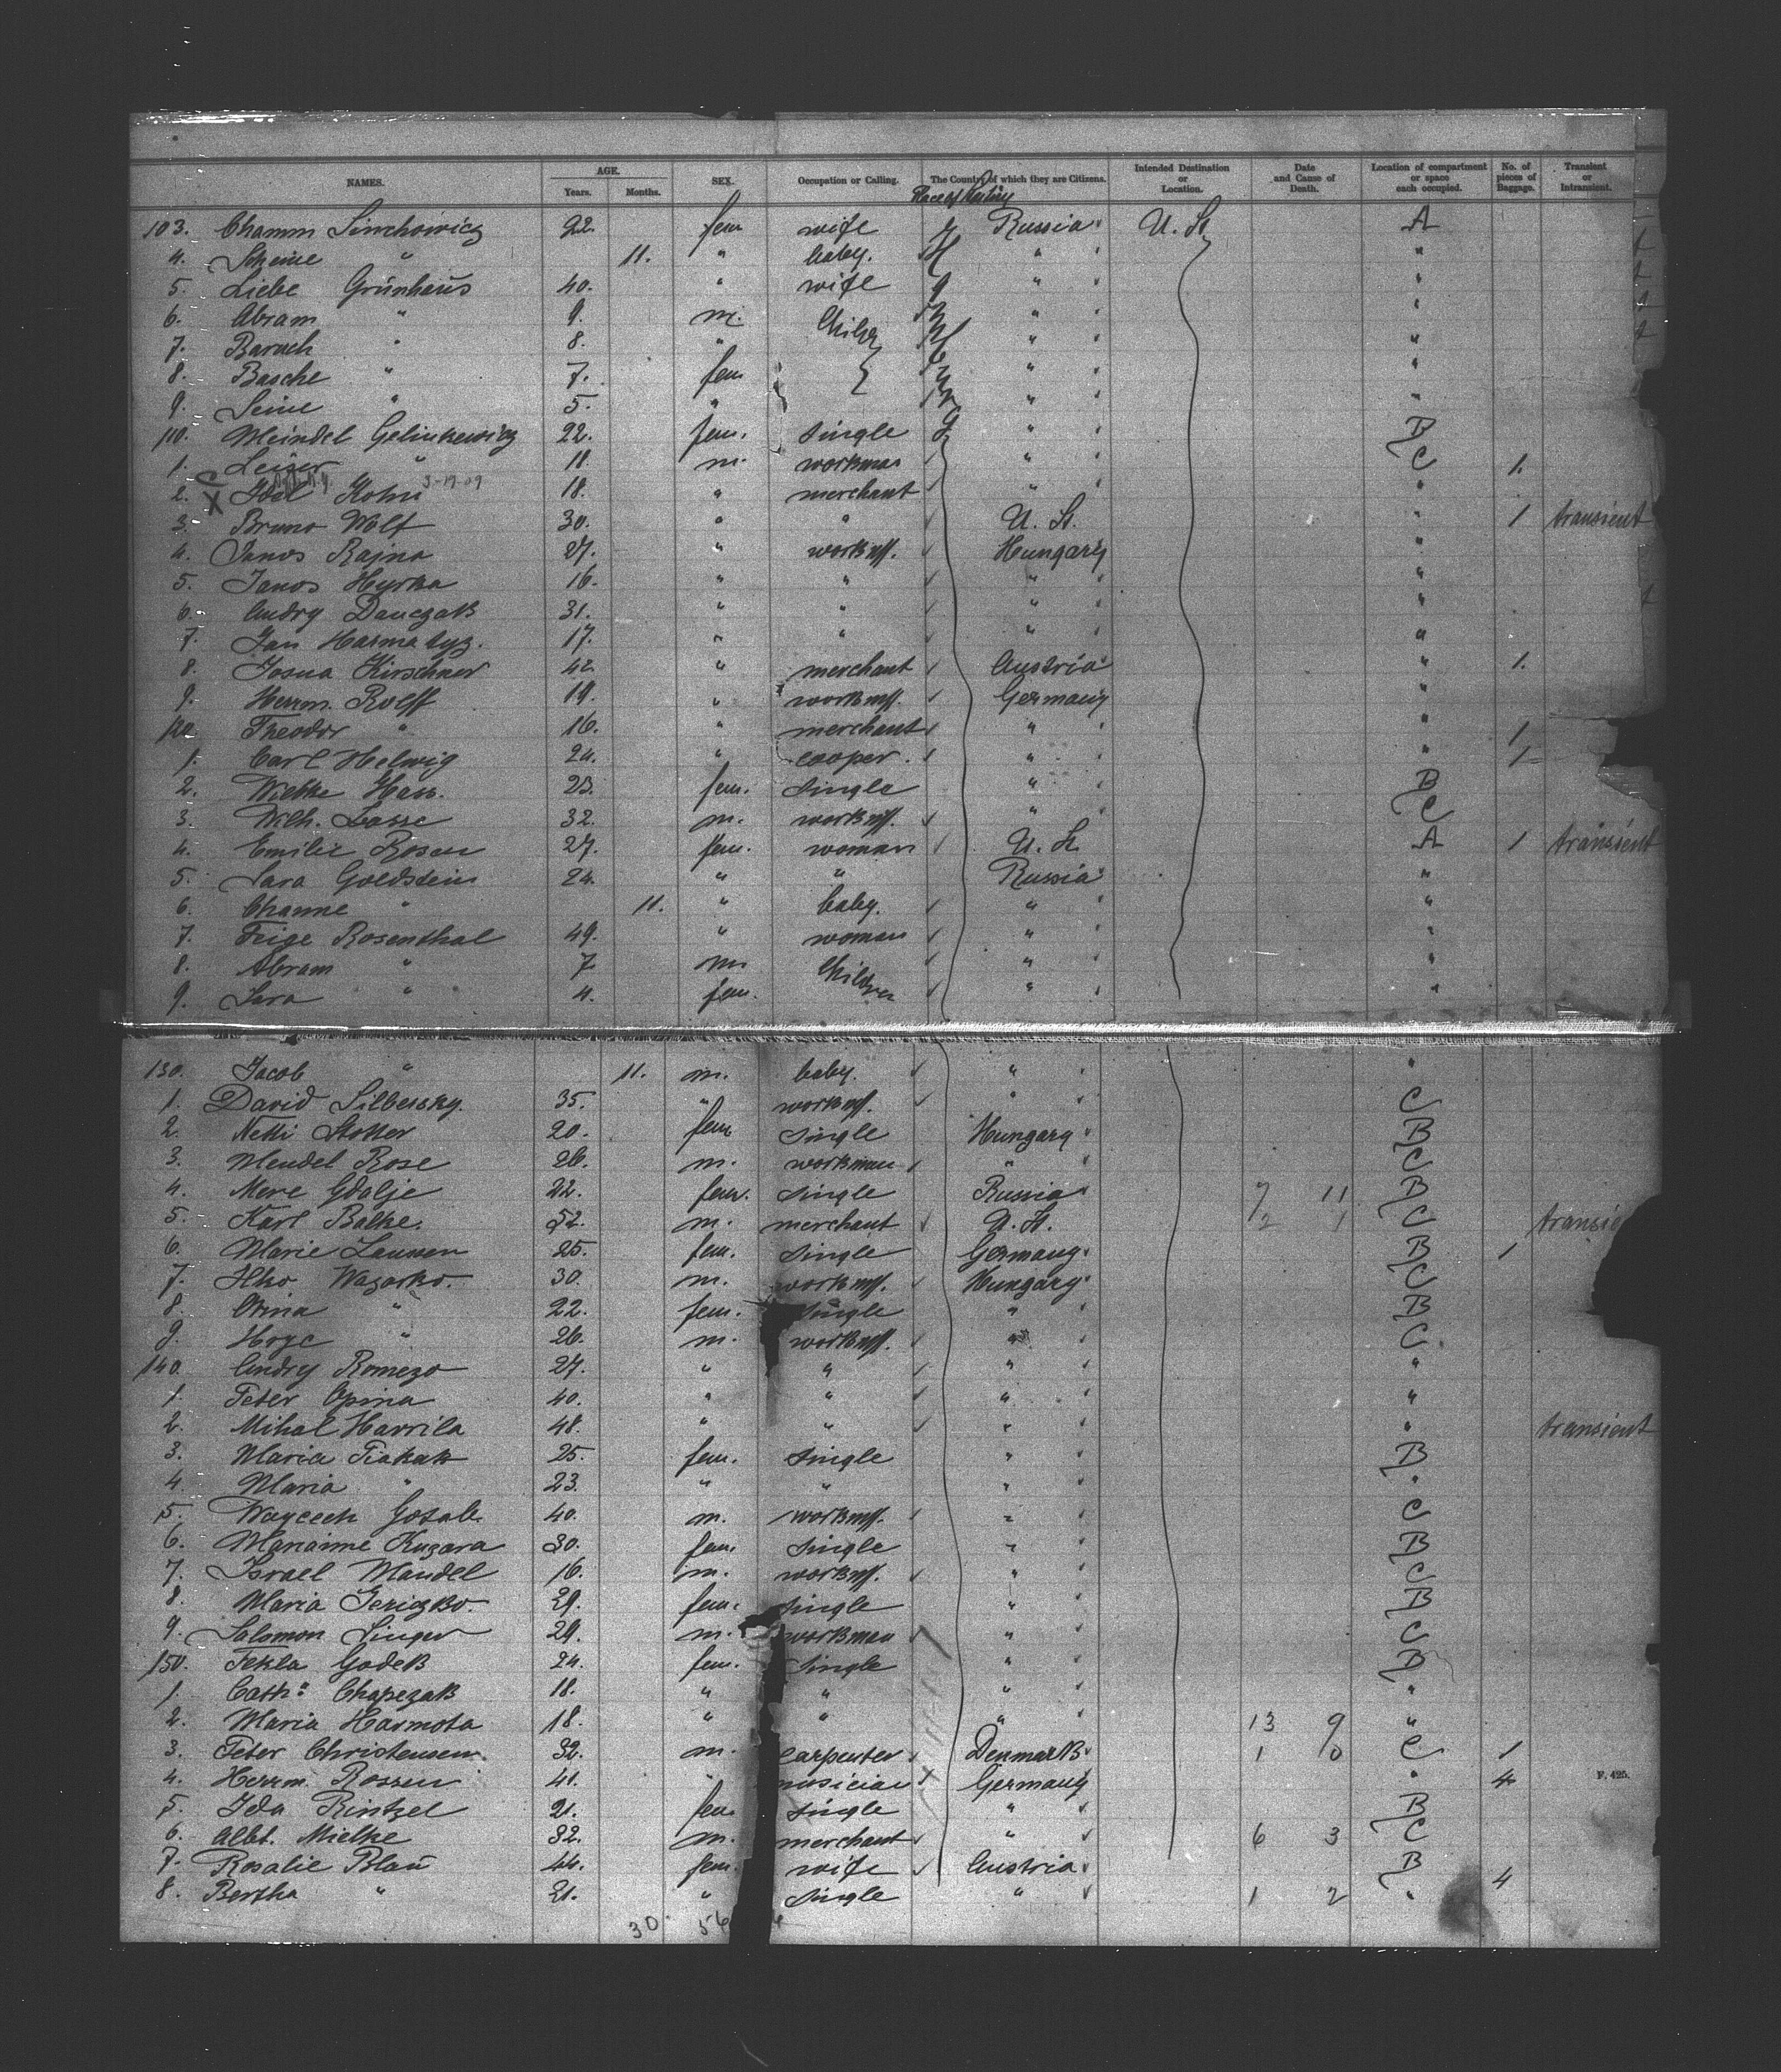 NAMES. AGE. Years. Months. SEX. Occupation or Calling. The Country of which they are Citizens. Intended Destination or Location. Date and Cause of Death. Location of compartment or space each occupied. No. of pieces of Baggage. Transient or Intransient.
103. Chamm Simchowicz 22. fem wife Russia U. St. A
4. Scheine " 11. " baby. " "
5. Liebe Grünhaus 40. " wife " "
6. Abram " 9. m. " "
7. Baruch " 8. " " "
8. Basche " 7. fem " "
9. Seine " 5. " " "
110. Meindel Gelinkewicz 22. fem. single " B
1. Leiser " 18. m. workman " C 1.
2. X Idel Kohn 3-19-09 18. " merchant " "
3. Bruno Wolf 30. " " U. St. " 1 transient
4. Janos Rajna 27. " workm. Hungary "
5. Janos Hyrka 16. " " " "
6. Andry Danczak 31. " " " "
7. Jan Harmatyz. 17. " " " "
8. Josua Kirschner 42 " merchant Austria " 1.
9. Herrm. Rolff 19. " workm. Germany "
120. Theodor " 16. " merchant " " 1
1. Carl Helwig 24. " cooper. " " 1
2. Wiebke Hass. 23. fem. single " B
3. Wilh. Lasse 32. m. workm. " C
4. Emilie Rosen 27. fem. woman U. St. A 1 transient
5. Sara Goldstein 24. " " Russia "
6. Channe " 11. " baby. " "
7. Feige Rosenthal 49. " woman " "
8. Abram " 7 m. Children " "
9. Sara " 4. fem. " "
130. Jacob " 11. m. baby. " "
1. David Silbersky. 35. " workm. " C
2. Netti Stotter 20. fem single Hungary B
3. Mendel Rose 26. m. workman " C
4. Mere Gdalje 22. fem. single Russia 7 11 B
5. Karl Balke. 52. m. merchant U. St. 2 1 C
6. Marie Lauwen 25. fem. single Germany B 1
7. Ilko Wazorko. 30. m. workm. Hungary C
8. " 22. fem. single " B
9. Hryc " 26. m. workm. " C
140. Andry Romezo 27. " " " "
1. Peter Opina 40. " " " "
2. Mihal Havrila 48. " " " " transient
3. Maria Tiakak 25. fem. single " B
4. Maria " 23. " " " "
5. Waycech 40. m. workm. " C
6. Marianne Kuzara 30. fem. single " B
7. Israel Mandel 16. m. workm. " C
8. Maria 29. fem. single " B
9. Salomon Singer 29. m. workman " C
150. Tekla Godek 24. fem. single " B
1. Cath: Chapezak 18. " " " "
2. Maria Harmota 18. " " " 13 9 "
3. Peter Christensen. 32. m. carpenter Denmark 1 0 C 1
4. Herrm. Rossen 41. " musician Germany " 4 F. 425.
5. Ida Rintzel 21. fem. single " B
6. Albt. Mielke 32. m. merchant " 6 3 C
7. Rosalie Blau 44. fem. wife Austria B 4
8. Bertha " 21. " single " 1 2 "
30 56